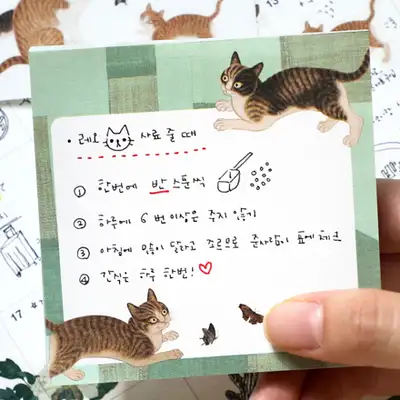 • 레오 사료 줄 때
① 한번에 반 스푼씩
② 하루에 6번 이상은 주지 않기
③ 아침에 많이 달라고 조르므로 준사람이 표에 체크
④ 간식은 하루 한번! ♡
17